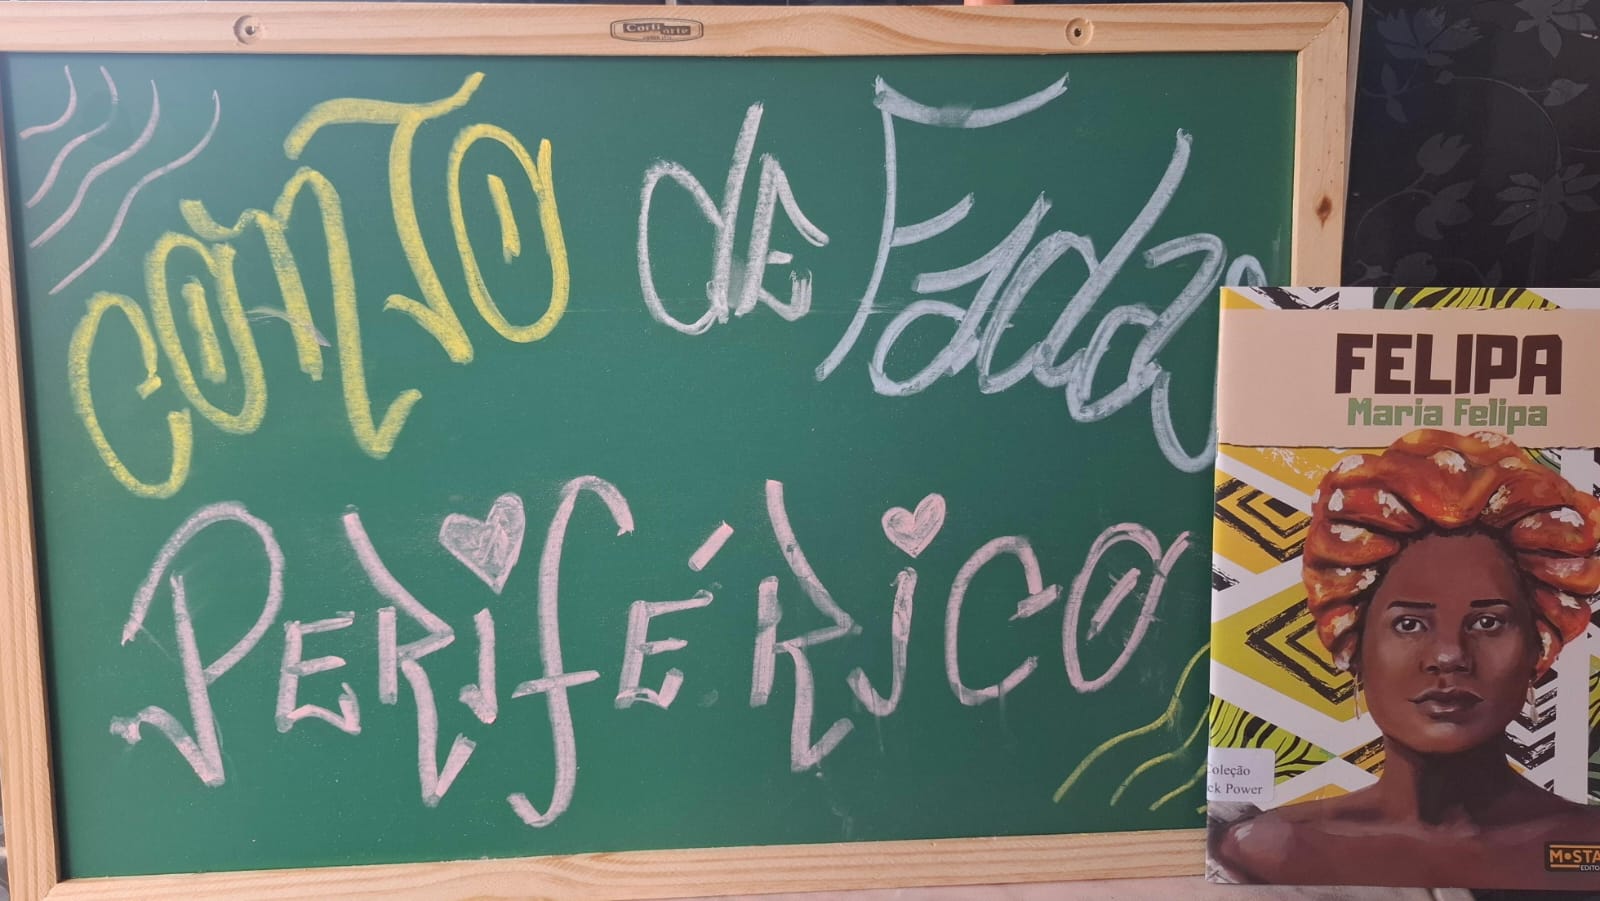 Cortiarte
CONTO de Fadas
PERIFÉRICO
FELIPA
Maria Felipa
Coleção
ck Power
MOSTA
EDITO